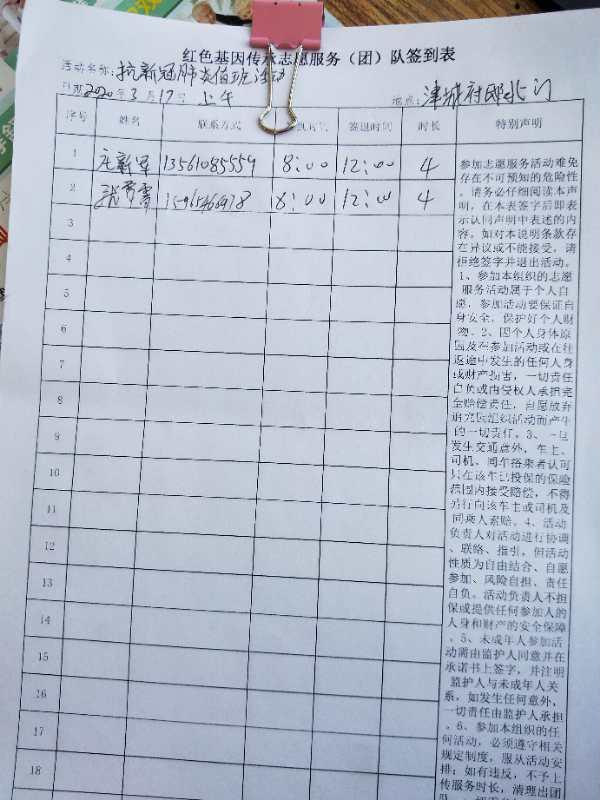 红色基因传承志愿服务（团）队签到表
活动名称：抗新冠肺炎值班活动
日期2020年3月17号 上午 地点：津城府邸北门
序号 姓名 联系方式 签退时间 时长 特别声明
1 新军 13561085559 8:00 12:00 4
2 8:00 12:00 4
3
4
5
6
7
8
9
10
11
12
13
14
15
16
17
18
参加志愿服务活动难免
存在不可预知的危险性
。请务必仔细阅读本声
明，在本表签字后即表
示认同声明中表述的内
容。如对本说明条款存
在异议或不能接受，请
拒绝签字并退出活动。
1、参加本组织的志愿
服务活动属于个人自
愿，参加活动要保证自
身安全，保护好个人财
物。2、因个人身体原
因及在参加活动或在往
返途中发生的任何人身
或财产损害，一切责任
自负或由侵权人承担完
全赔偿责任，自愿放弃
追究该组织活动而产生
的一切责任。3、一旦
发生交通意外，车主、
司机、同车搭乘者认可
只在该车已投保的保险
范围内接受赔偿，不得
另行向该车主或司机及
同乘人索赔。4、活动
负责人对活动进行协调
、联络、指引，但活动
性质为自由结合、自愿
参加、风险自担、责任
自负。活动负责人不担
保或提供任何参加人的
人身和财产的安全保障
。5、未成年人参加活
动需由监护人同意并在
承诺书上签字，并注明
监护人与未成年人关
系，如发生任何意外，
一切责任由监护人承担
。6、参加本组织的任
何活动，必须遵守相关
规定制度，服从活动安
排；如有违反，不予上
传服务时长，清理出团